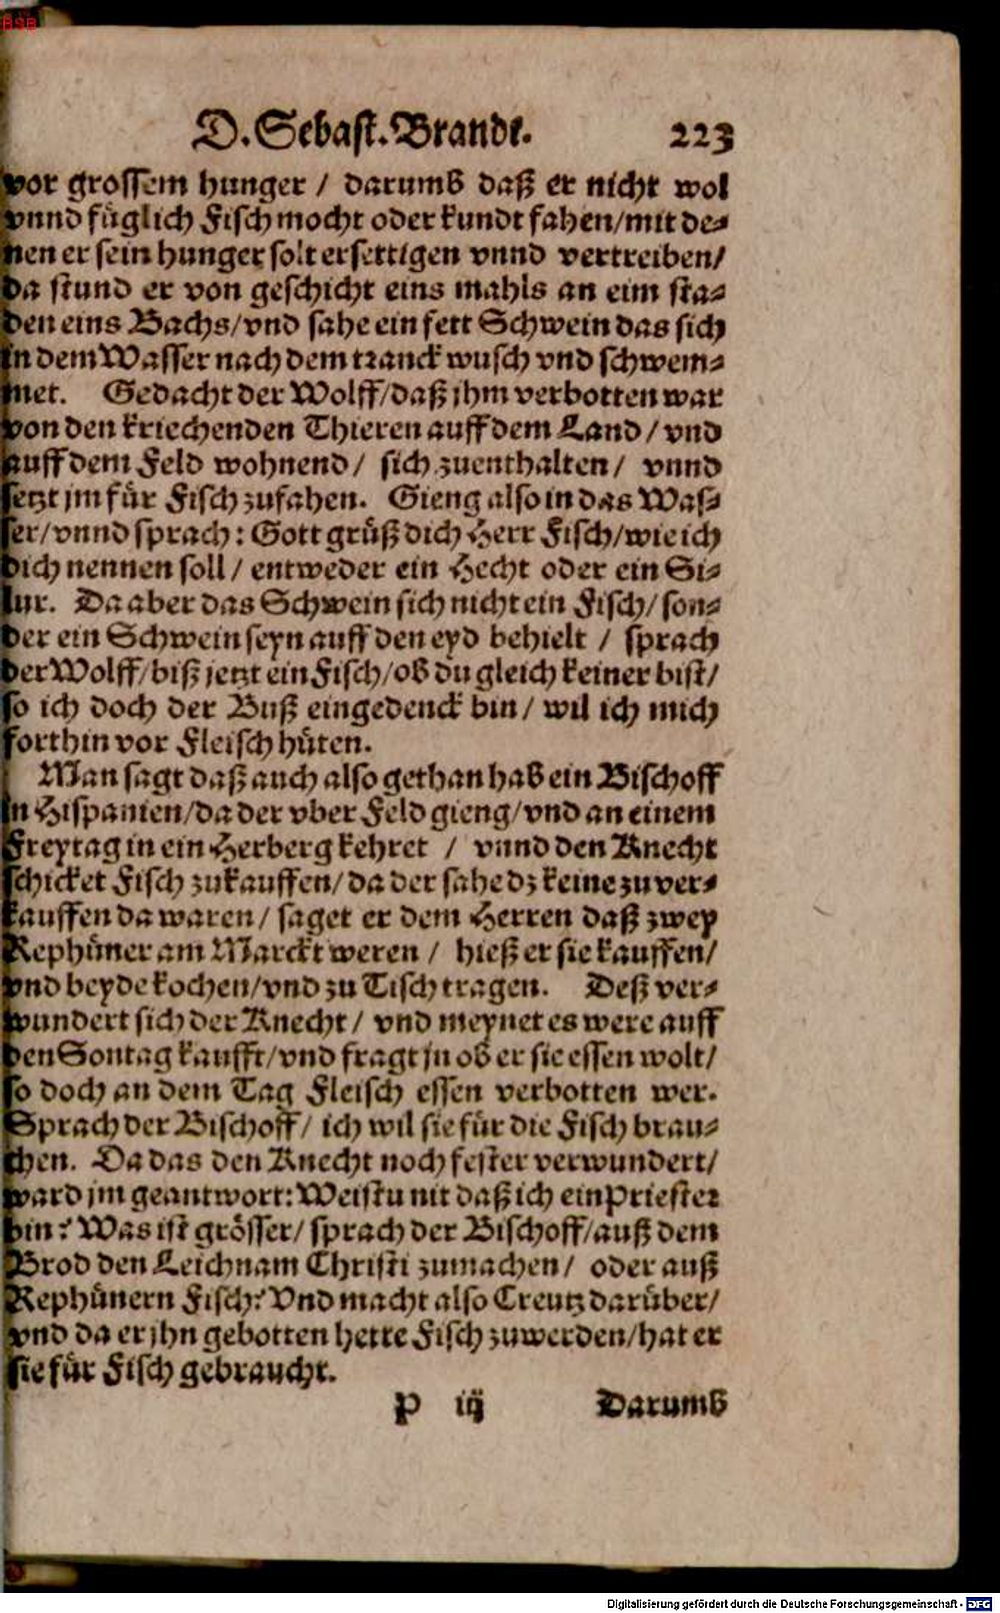 BSB
D. Sebast. Brandt. 223
vor grossem hunger / darumb daß er nicht wol
vnnd füglich Fisch mocht oder kundt fahen / mit de-
nen er sein hunger solt ersettigen vnnd vertreiben /
da stund er von geschicht eins mahls an eim sta-
den eins Bachs / vnd sahe ein fett Schwein das sich
in dem Wasser nach dem tranck wusch vnd schwem-
met. Gedacht der Wolff / daß jhm verbotten war
von den kriechenden Thieren auff dem Land / vnd
auff dem Feld wohnend / sich zuenthalten / vnnd
setzt jm für Fisch zufahen. Gieng also in das Was-
ser / vnnd sprach: Gott grüß dich Herr Fisch / wie ich
dich nennen soll / entweder ein Hecht oder ein Si-
lur. Da aber das Schwein sich nicht ein Fisch / son-
der ein Schwein seyn auff den eyd behielt / sprach
der Wolff / biß jetzt ein Fisch / ob du gleich keiner bist /
so ich doch der Buß eingedenck bin / wil ich mich
forthin vor Fleisch hüten.
Man sagt daß auch also gethan hab ein Bischoff
in Hispanien / da der vber Feld gieng / vnd an einem
Freytag in ein Herberg kehret / vnnd den Knecht
schicket Fisch zukauffen / da der sahe dz keine zu ver-
kauffen da waren / saget er dem Herren daß zwey
Rephüner am Marckt weren / hieß er sie kauffen /
vnd beyde kochen / vnd zu Tisch tragen. Deß ver-
wundert sich der Knecht / vnd meynet es were auff
den Sontag kaufft / vnd fragt jn ob er sie essen wolt /
so doch an dem Tag Fleisch essen verbotten wer.
Sprach der Bischoff / ich wil sie für die Fisch brau-
chen. Da das den Knecht noch fester verwundert /
ward jm geantwort: Weistu nit daß ich ein Priester
bin? Was ist grösser / sprach der Bischoff / auß dem
Brod den Leichnam Christi zumachen / oder auß
Rephünern Fisch? Vnd macht also Creutz darüber /
vnd da er jhn gebotten hette Fisch zuwerden / hat er
sie für Fisch gebraucht.
P iij Darumb
Digitalisierung gefördert durch die Deutsche Forschungsgemeinschaft - DFG